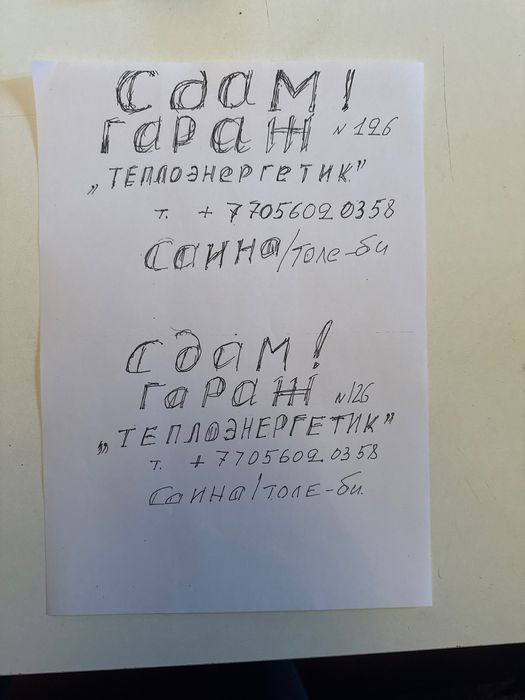 Сдам!
гараж N 126
„ТЕПЛОЭНЕРГЕТИК"
т. +77056020358
Саина/Толе-би
Сдам!
гараж N126
„ТЕПЛОЭНЕРГЕТИК"
т. +77056020358
Саина/Толе-би.